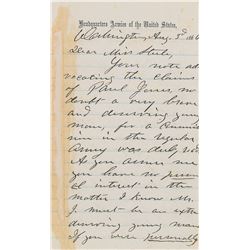 Headquarters Armies of the United States,
Washington, Aug. 3d 186
Dear Miss
Your note ad
vocating the claims
of Paul Jones, no
doubt a very brave
and deserving young
man, for a commis
sion in the regular
Army was duly
As you assure me
you have no person
al interest in the
matter I know Mr.
J. must be an
deserving young man
If you were personally